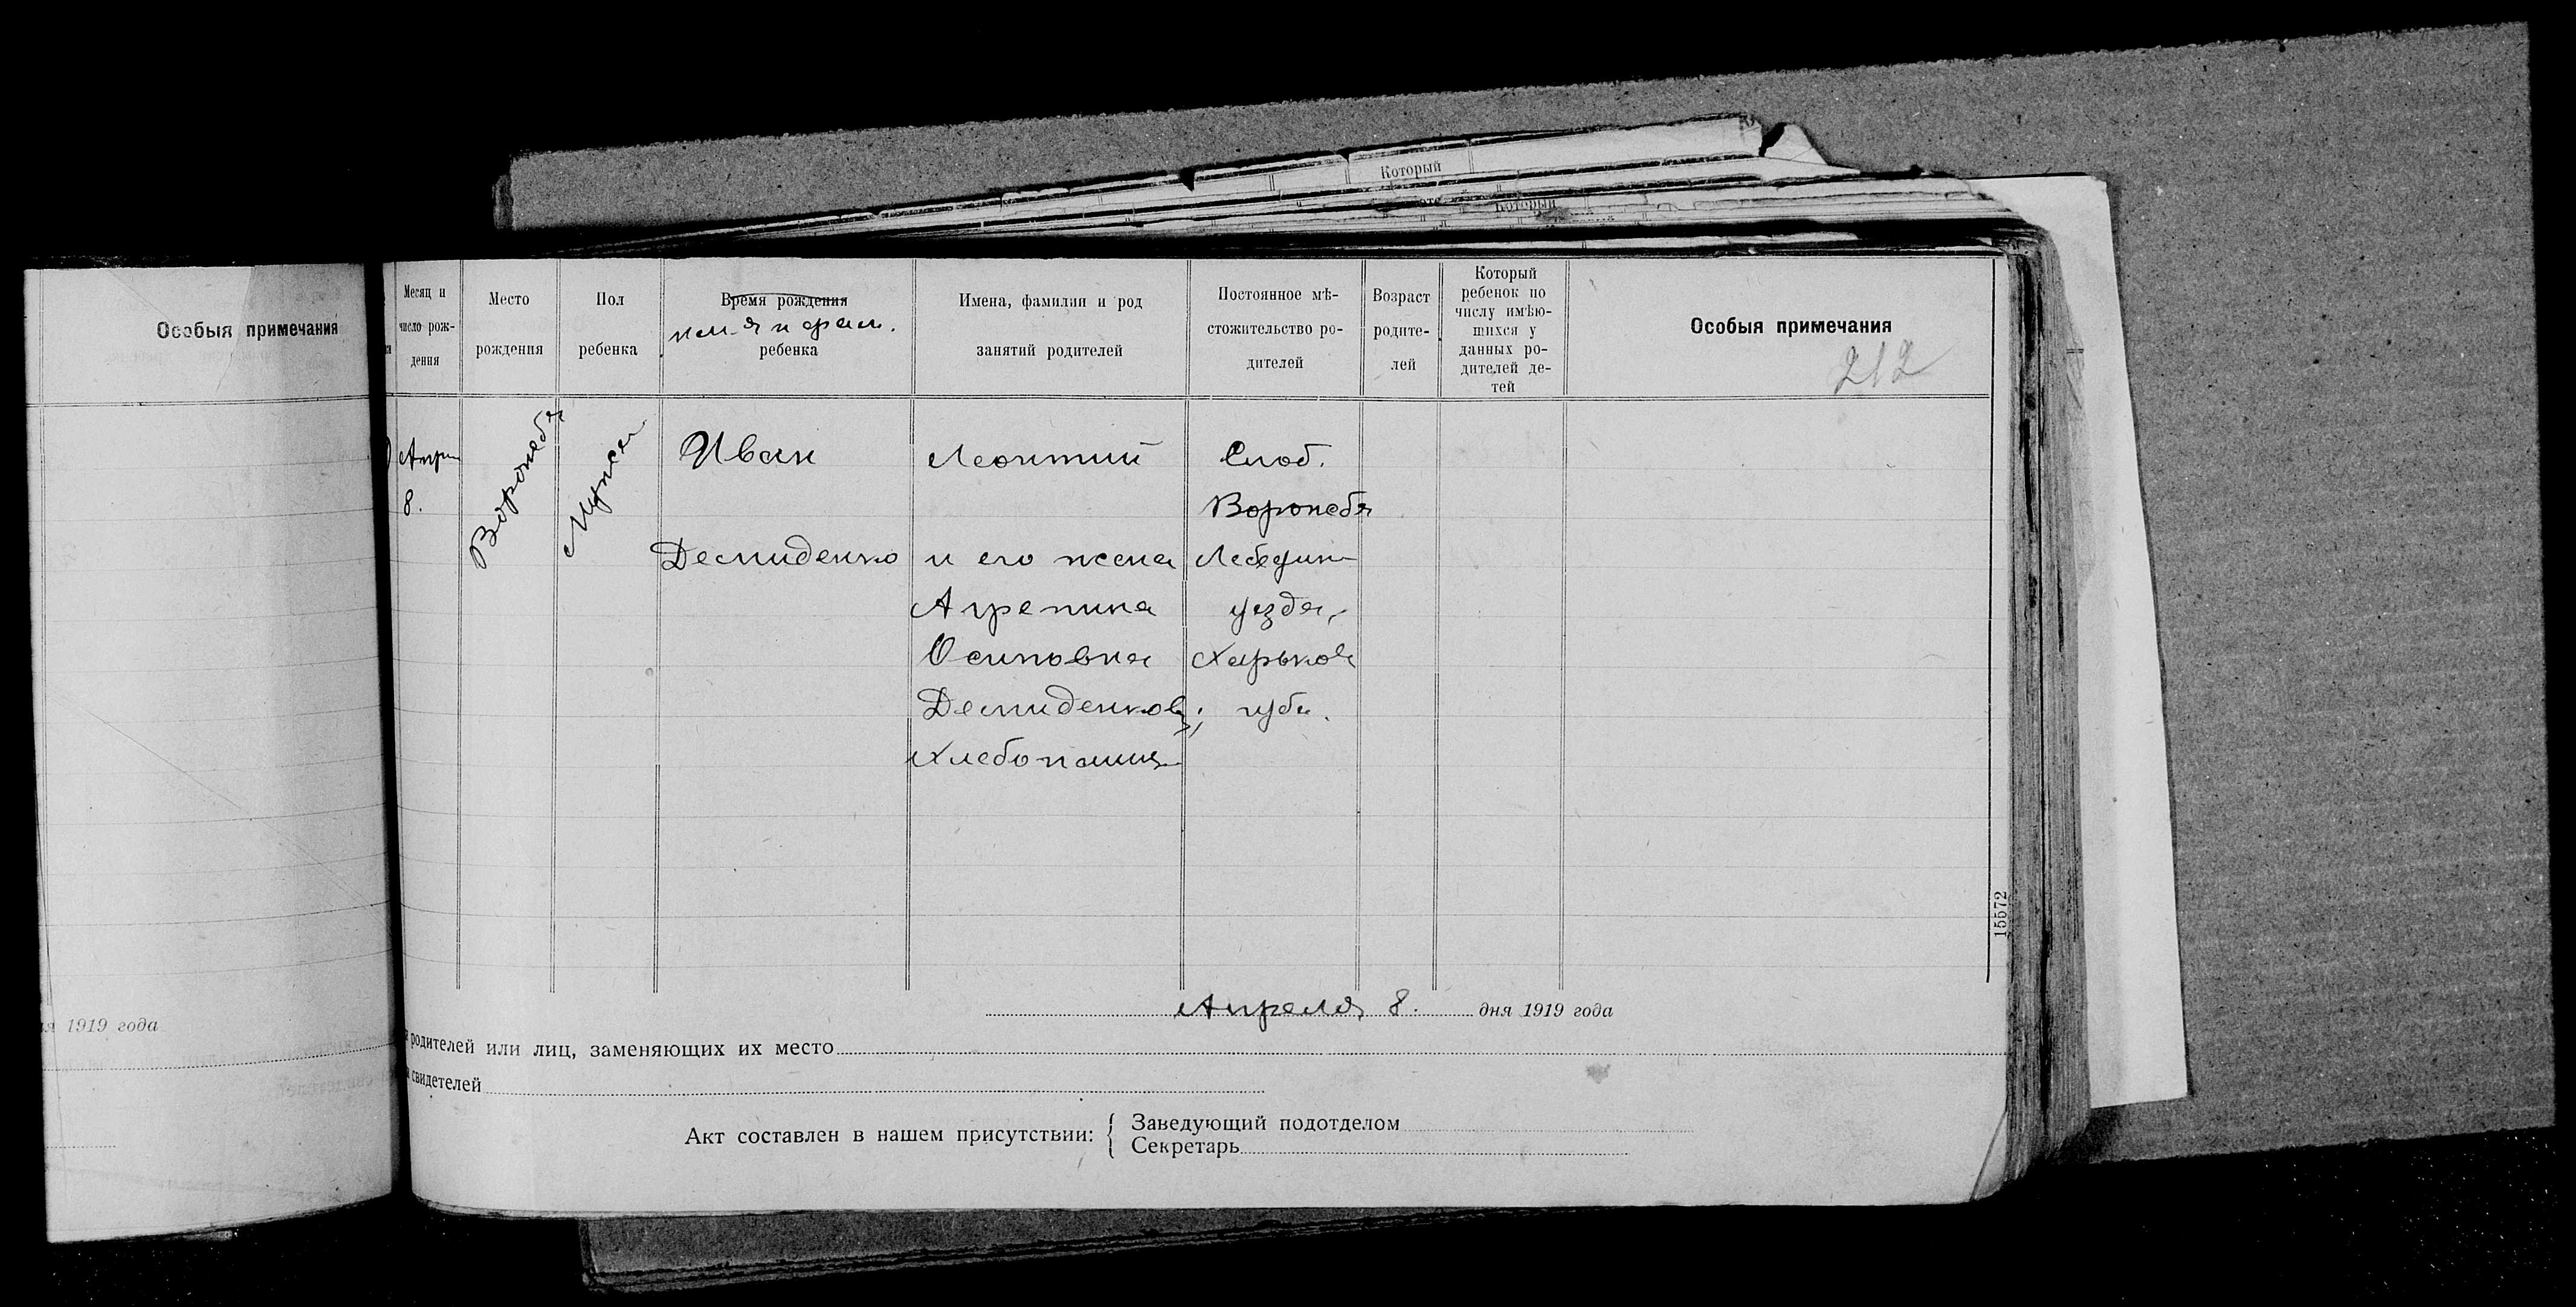 Который
Который
Особыя примечания
Месяц и
число рож-
дения
Место
рождения
Пол
ребенка
Время рождения
имя и фам.
ребенка
Имена, фамилии и род
занятий родителей
Постоянное мѣ-
стожительство ро-
дителей
Возраст
родите-
лей
Который
ребенок по
числу имѣю-
щихся у
данных ро-
дителей де-
тей
Особыя примечания
212
Апр
8.
Воронеба
Мужск
Иван
Демиденко
Леонтий
и его жена
Агрепина
Осиповна
Демиденков;
Хлебопашц
Слоб.
Воронеба
Лебедин
уезда,
Харьков
губ.
15572
я 1919 года
Апреля 8. дня 1919 года
родителей или лиц, заменяющих их место
свидетелей
Акт составлен в нашем присутствии:
Заведующий подотделом
Секретарь